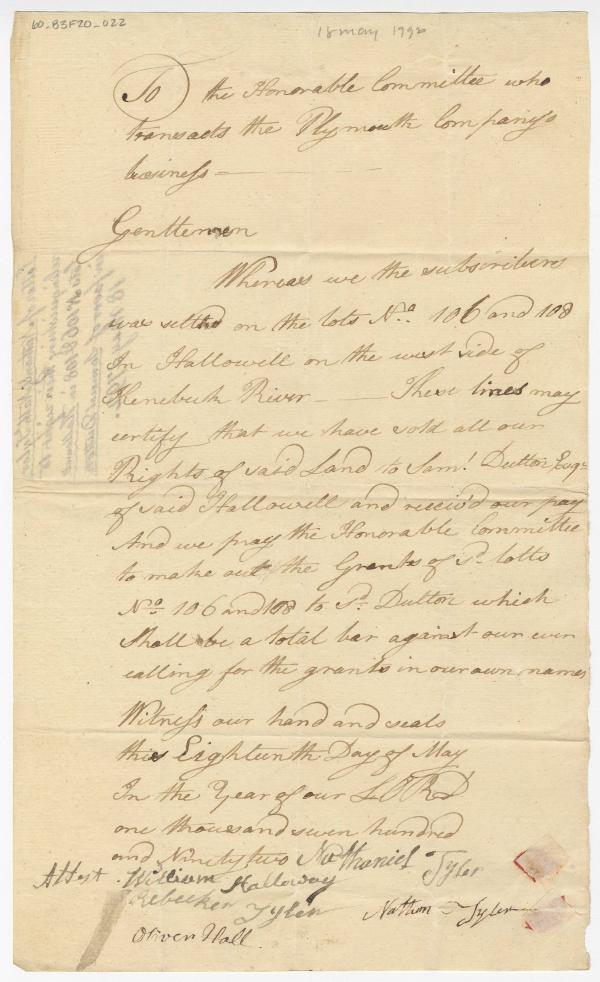 60_B3F20_022
18 may 1792
To the Honorable Committee who
transacts the Plymouth Companys
business —
Gentlemen
Whereas we the subscribers
was settled on the lots No. 106 and 108
In Hallowell on the west side of
Kenebuk River — These lines may
certify that we have sold all our
Rights of said Land to Saml. Dutton Esqr.
of said Hallowell and receiv'd our pay
And we pray the Honorable Committee
to make out the Grants of sd. lotts
No. 106 and 108 to sd. Dutton which
shall be a total bar against our ever
calling for the grants in our own names
Witness our hand and seals
this Eighteenth Day of May
In the Year of our LORD
one thousand seven hundred
and Ninety two Nathaniel Tyler
Attest. William Halloway
Rebecker Tyler Nathon Tyler
Oliver Hall.